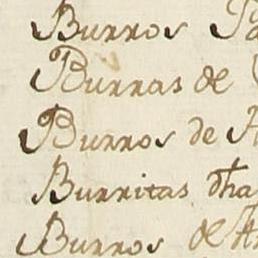 Burros
Burras de
Burros de
Burritas dha
Burros de